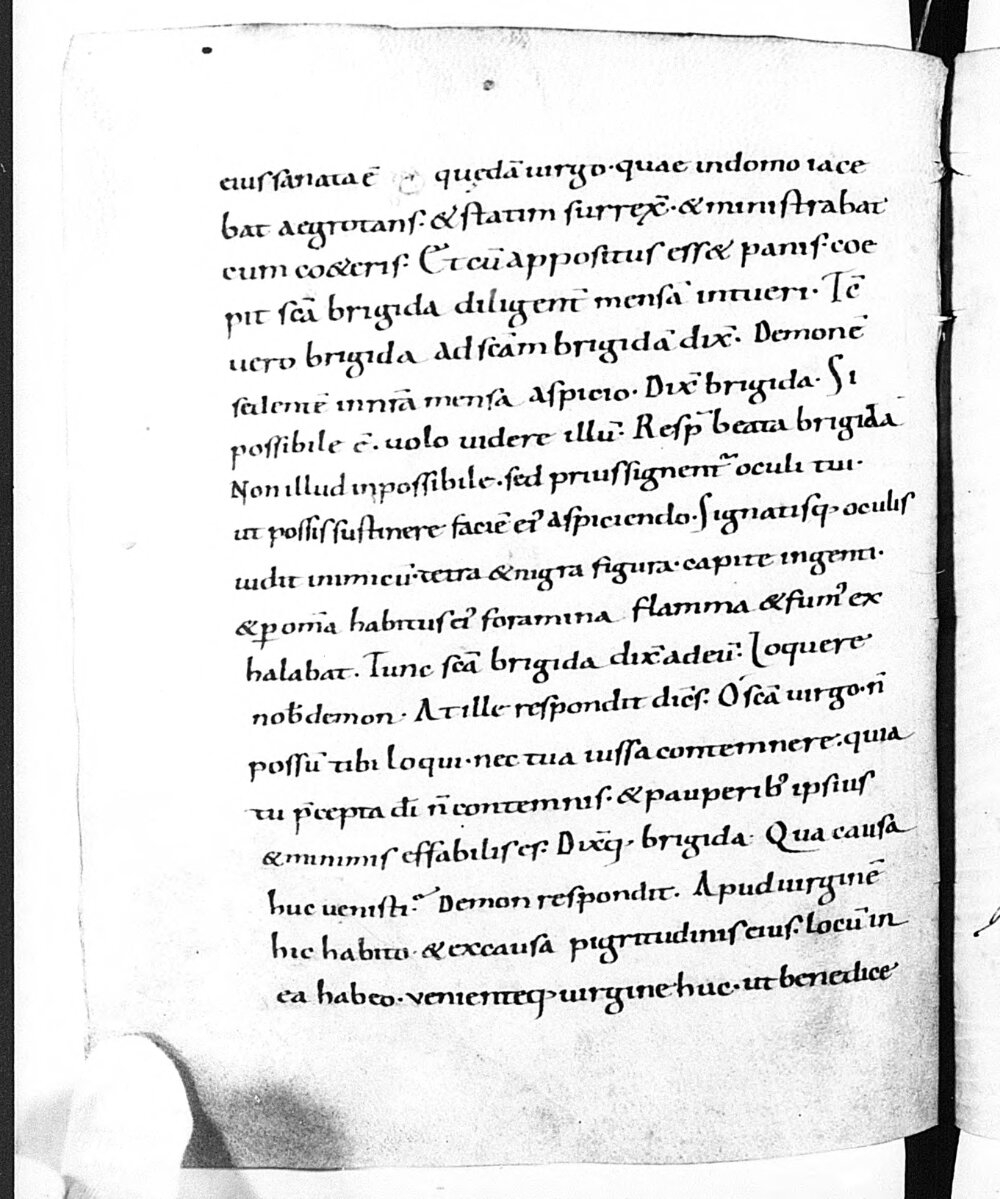 eius sanata ē quędā uirgo· quae indomo iace
bat aegrotans· & statim surrex̄· & ministrabat
cum co&eris· Et cū appositus ess& panis· coe
pit sc̄a brigida diligent̄ mensā intueri· Tc̄
uero brigida ad sc̄am brigidā dix̄· Demonē
sedentē innr̄a mensa aspicio· Dix̄ brigida· Si
possibile ē· uolo uidere illū· Resp̄ beata brigida
Non illud inpossibile· sed prius signent᷑ oculi tui·
ut possis sustinere faciē ei᾽ aspiciendo· Signatisq· oculis
uidit inimicū· tetra & nigra figura· capite ingenti·
& ꝑ om̄a habitus ei᾽ foramina flamma & fum᾽ ex
halabat. Tunc sc̄a brigida dix̄ ad eū· Loquere
nob̄ demon· At ille respondit dic̄s· O sc̄a uirgo· n̄
possū tibi loqui· nec tua iussa contemnere· quia
tu p̄cepta dī n̄ contemnis· & pauperib᾽ ipsius
& minimis effabilis es· Dix̄q· brigida· Qua causa
huc uenisti? Demon respondit. Apud uirginē
hic habito· & excausa pigritudinis eius· locū in
ea habeo· venienteq· uirgine huc· ut benedice